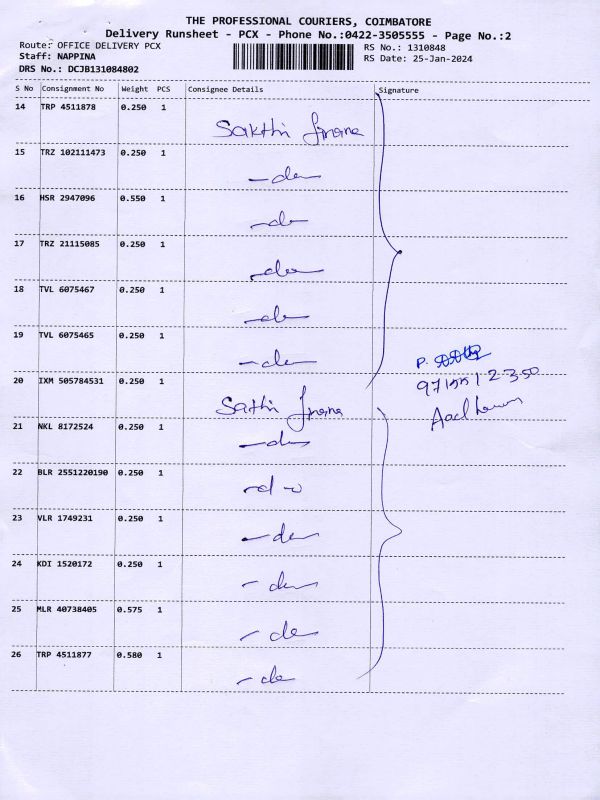 THE PROFESSIONAL COURIERS, COIMBATORE
Delivery Runsheet - PCX - Phone No.:0422-3505555 - Page No.:2
Route: OFFICE DELIVERY PCX
Staff: NAPPINA
DRS No.: DCJB131084802
RS No.: 1310848
RS Date: 25-Jan-2024
S No Consignment No Weight PCS Consignee Details Signature
14 TRP 4511878 0.250 1
Sakthi
15 TRZ 102111473 0.250 1
- do
16 HSR 2947096 0.550 1
- do
17 TRZ 21115085 0.250 1
- do
18 TVL 6075467 0.250 1
- do
19 TVL 6075465 0.250 1
- do
P.
20 IXM 505784531 0.250 1
Sakthi
21 NKL 8172524 0.250 1
- do
22 BLR 2551220190 0.250 1
- do
23 VLR 1749231 0.250 1
- do
24 KDI 1520172 0.250 1
- do
25 MLR 40738405 0.575 1
- do
26 TRP 4511877 0.580 1
- do